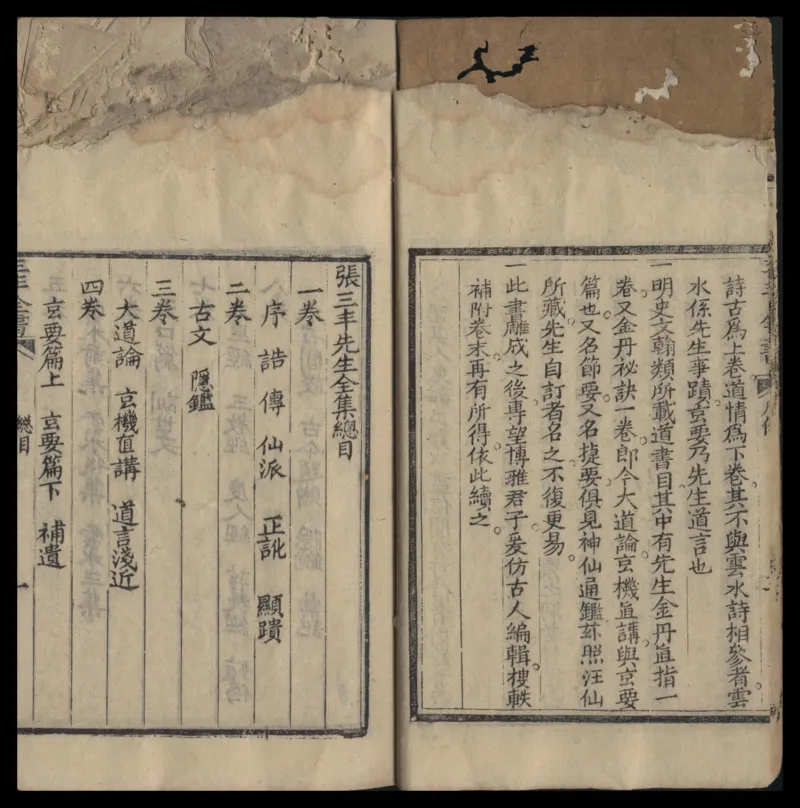 詩古爲上卷道情爲下卷其不與雲水詩相參者雲
水係先生事蹟玄要乃先生道言也
一明史文翰類所載道書目其中有先生金丹直指一
卷又金丹秘訣一卷郎今大道論玄機直講與玄要
篇也又名節要又名捷要俱見神仙通鑑茲照汪仙
所藏先生自訂者名之不復更易
一此書雕成之後專望博雅君子爰仿古人編輯搜軼
補附卷末再有所得依此續之
張三丰先生全集總目
一卷
序 誥 傳 仙派 正訛 顯蹟
二卷
古文 隱鑑
三卷
大道論 玄機直講 道言淺近
四卷
玄要篇上 玄要篇下 補遺
總目
一